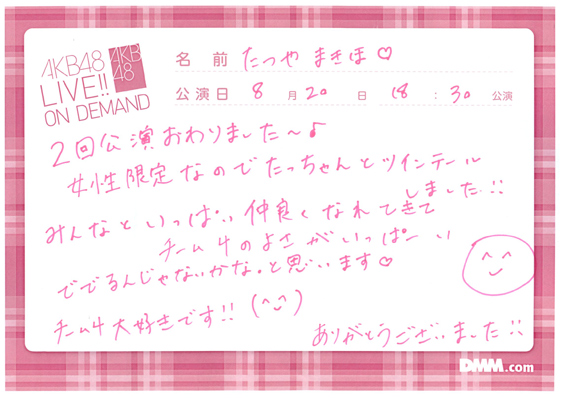 AKB48
LIVE!!
ON DEMAND
AKB
48
名前 たつや まきほ♡
公演日 8月20日 18:30公演
2回公演おわりました〜♪
女性限定なのでたっちゃんとツインテール
しました!!
みんなといっぱい仲良くなれてきて
チーム4のよさがいっぱーい
でてるんじゃないかな。と思います♡
チーム4大好きです!! (^‿^)
ありがとうございました!!
DMM.com